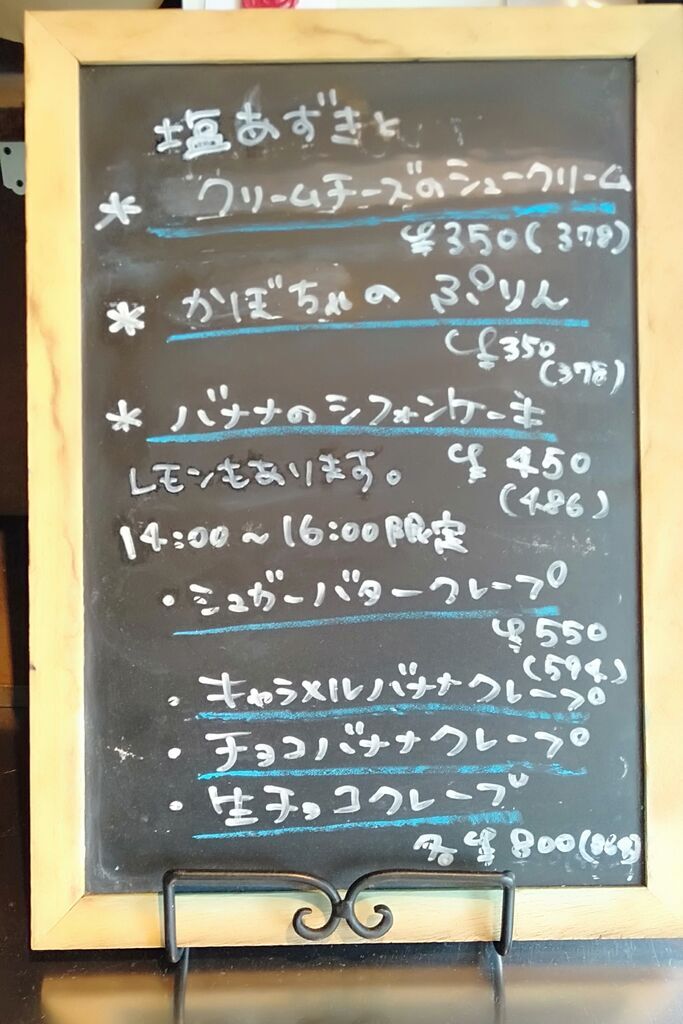 塩あずきと
* クリームチーズのシュークリーム
¥350(378)
* かぼちゃの ぷりん
¥350
(378)
* バナナのシフォンケーキ
レモンもあります。 ¥450
(486)
14:00~16:00限定
・シュガーバタークレープ
¥550
(594)
・キャラメルバナナクレープ
・チョコバナナクレープ
・生チョコクレープ
各¥800(864)